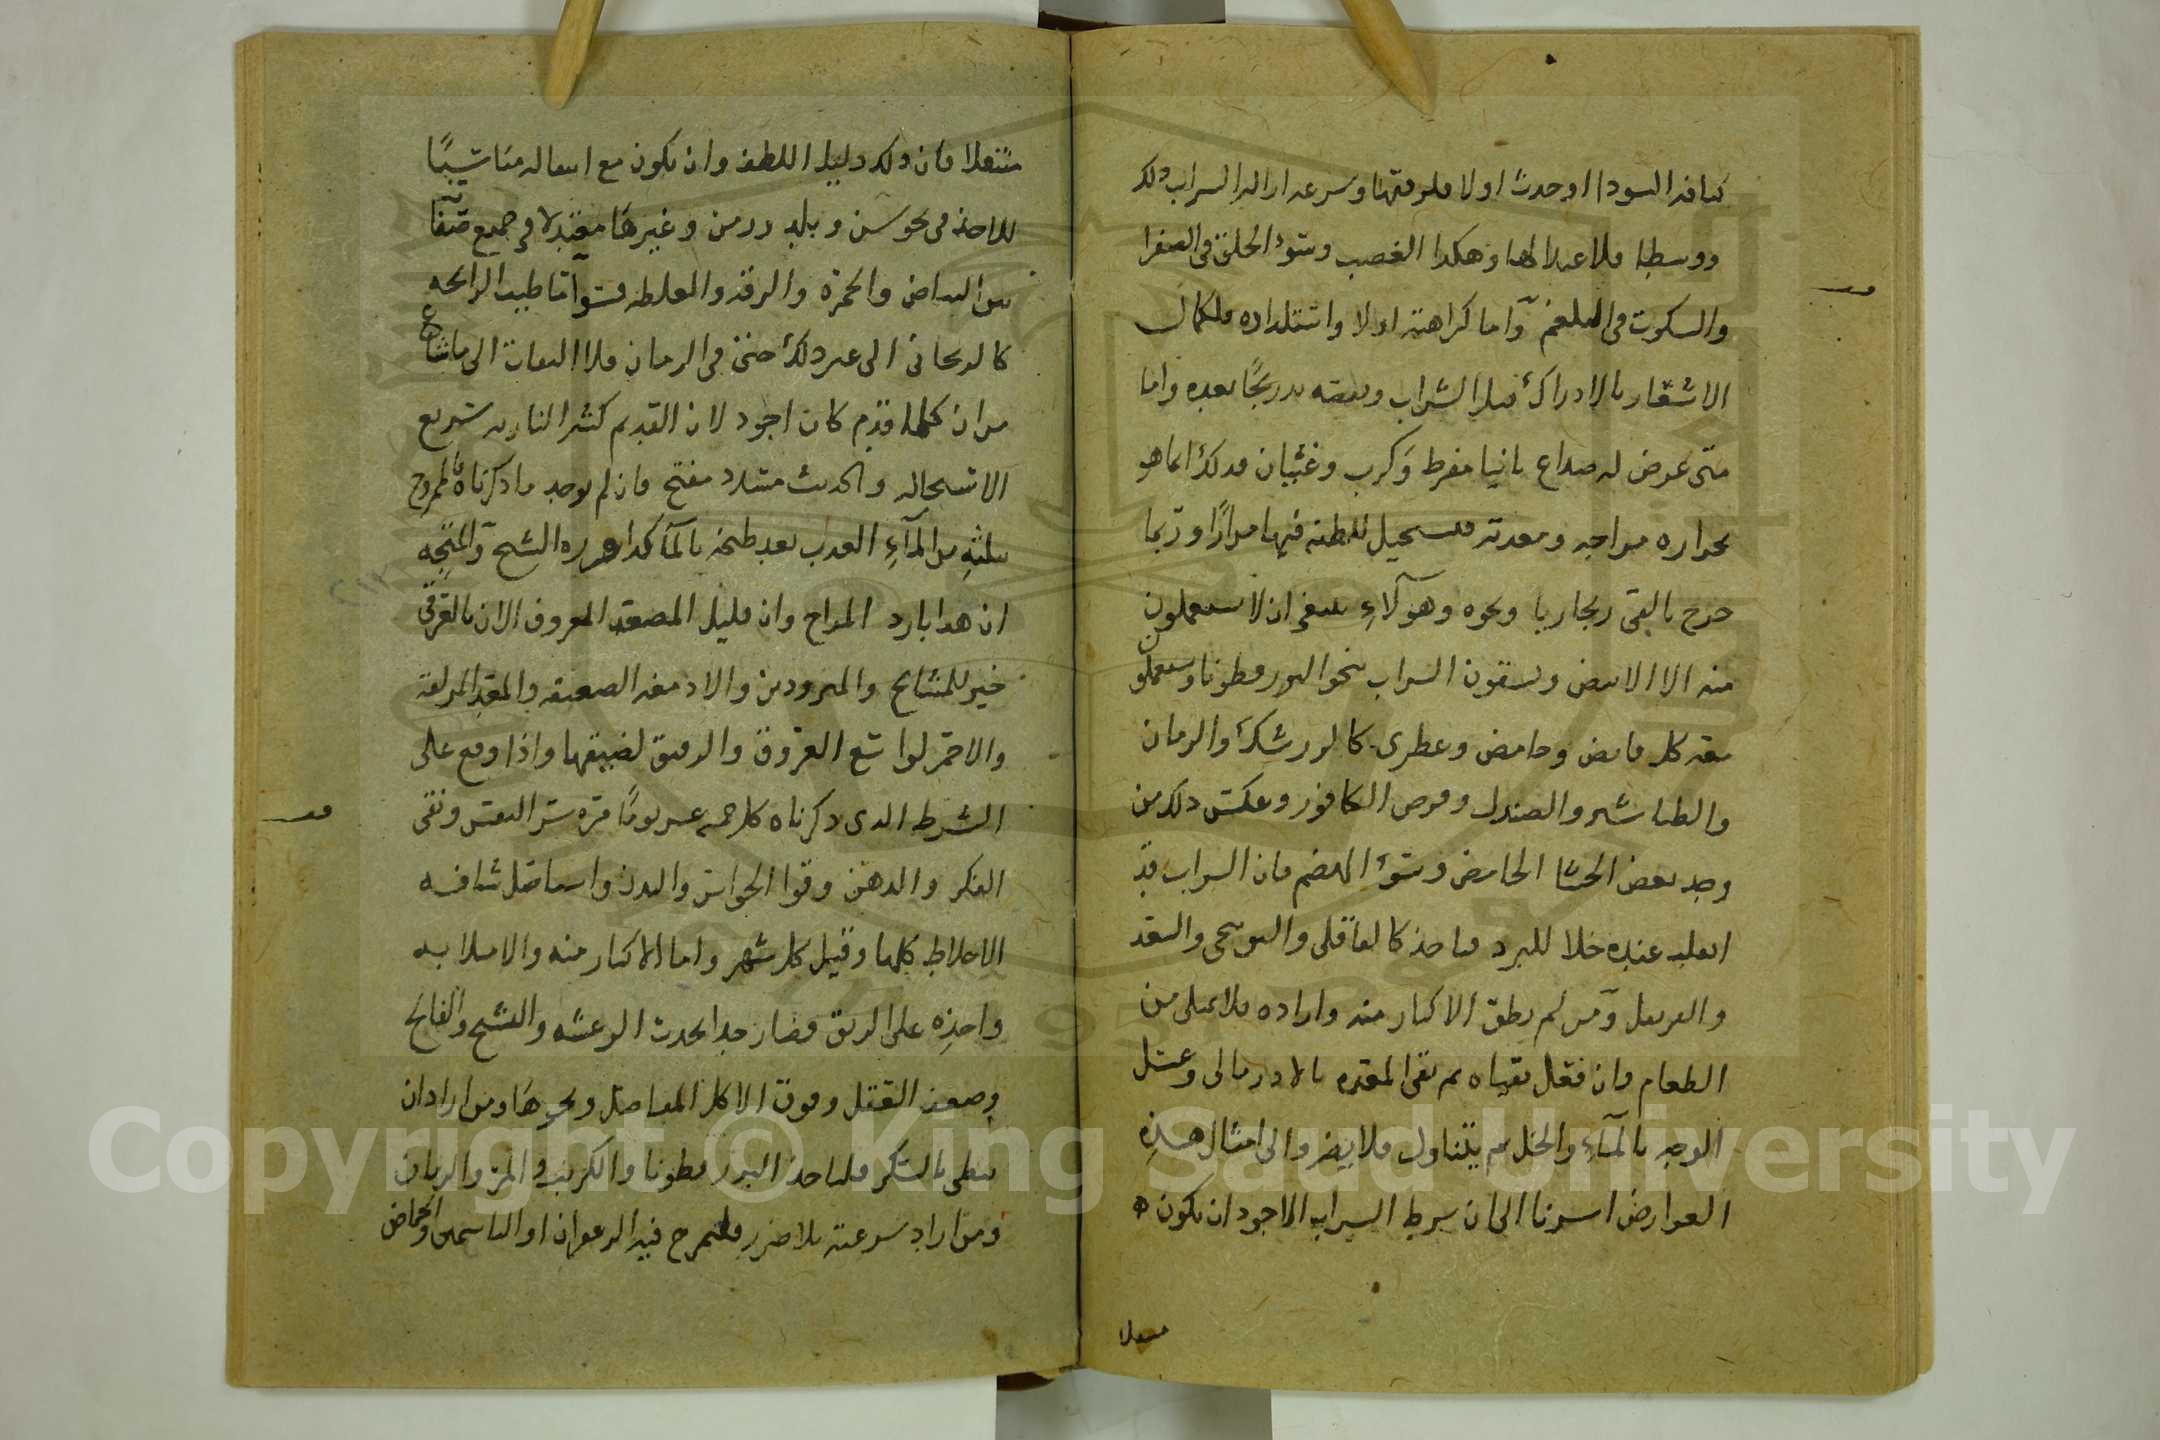 كثافة السوداء اوحدث اولا فلرقتها وسرعة ازالة الشراب ذلك
ووسطا فلاعتدالها وهكذا الغضب وسوء الخلق في الصفرا
والسكوت في البلغم وآما كراهته اولا واستلذاذه فلكمال
الاشعار بالادراك قبل الشراب ونقصه تدريجًا بعده واما
متى عرض له صداع ثانيا مفرط وكرب وغثيان فذلك انما هو
لحرارة مزاجه ومعدته فيستحيل للطفه فيها مرارًا وربما
خرج بالقي زنجاريا ونحوه وهوآلاءِ ينبغي ان لا يستعملون
منه الا الابيض ويسقون الشراب بنحو البزر قطونا ويستعملون
معه كل قابض وحامض وعطري كالزرشك والرمان
والطباشير والصندل وقرص الكافور وعكس ذلك من
وجد بعض الجشا الحامض وسوء الهضم فان الشراب قد
انقلب عنده خلا للبرد فياخذ كالفلافلي والفوتنجي والسعد
والقرنفل وآمن لم يطق الاكثار منه واراده فلا يمتلي من
الطعام وان فعل تقياه ثم نقى المعده بالادرمالي وغسل
الوجه بالمآءِ والخل ثم يتناول فلا يضر والى امثال هذه
العوارض اشرنا الى ان شرط الشراب الاجود ان يكون
منتقلا
منتقلا فان ذلك دليل اللطف وان يكون مع انتقاله مناسبًا
للآخذ في نحو سن وبلد وزمن وغيرها معتدلا في جميع صفاته
بين البياض والحمرة والرقه والغلظه قسوآما طيب الرائحه
كالريحاني الى غير ذلك حتى في الزمان فلا التفات الى ماشاع
من ان كلما قدم كان اجود لان القديم كثير الناريه سريع
الاستحاله والحديث مسدد مفتح فان لم يوجد ما ذكرناه فالممزوج
بثلثهِ من المآءِ العذب بعد طبخه بالمآ كذا قرره الشيخ وآلمتجه
ان هذا بارد المزاج وان قليل المصعد المعروف الان بالعرقي
خير للمشايخ والمبرودين والادمغه الضعيفه والمعد المزلقه
والاحمر لواسع العروق والرقيق لضيقها واذا وقع على
الشرط الذي ذكرناه كل خمسة عشر يومًا مرة سر النفس ونقى
الفكر والذهن وقوا الحواس والبدن واستاصل شافه
الاخلاط كلها وقيل كل شهر واما الاكثار منه والامتلا به
واخذه على الريق فضار جدا يحدث الرعشه والتشنج والفالج
وضعف العقل وفوق الاكل المفاصل ونحوها ومن اراد ان
يبطي بالسكر فلياخذ البزر قطونا والكرنب والمر والرمان
ومن اراد سرعته بلا ضرر فليمزج فيه الزعفران او الياسمين والحماض